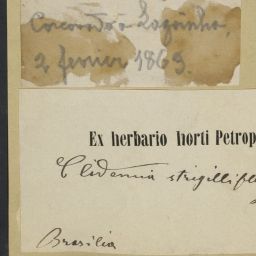 Corcovado a Lagoinha,
2 fevrier 1869.
Ex herbario horti Petrop
Clidemia strigillifl
Brasilia